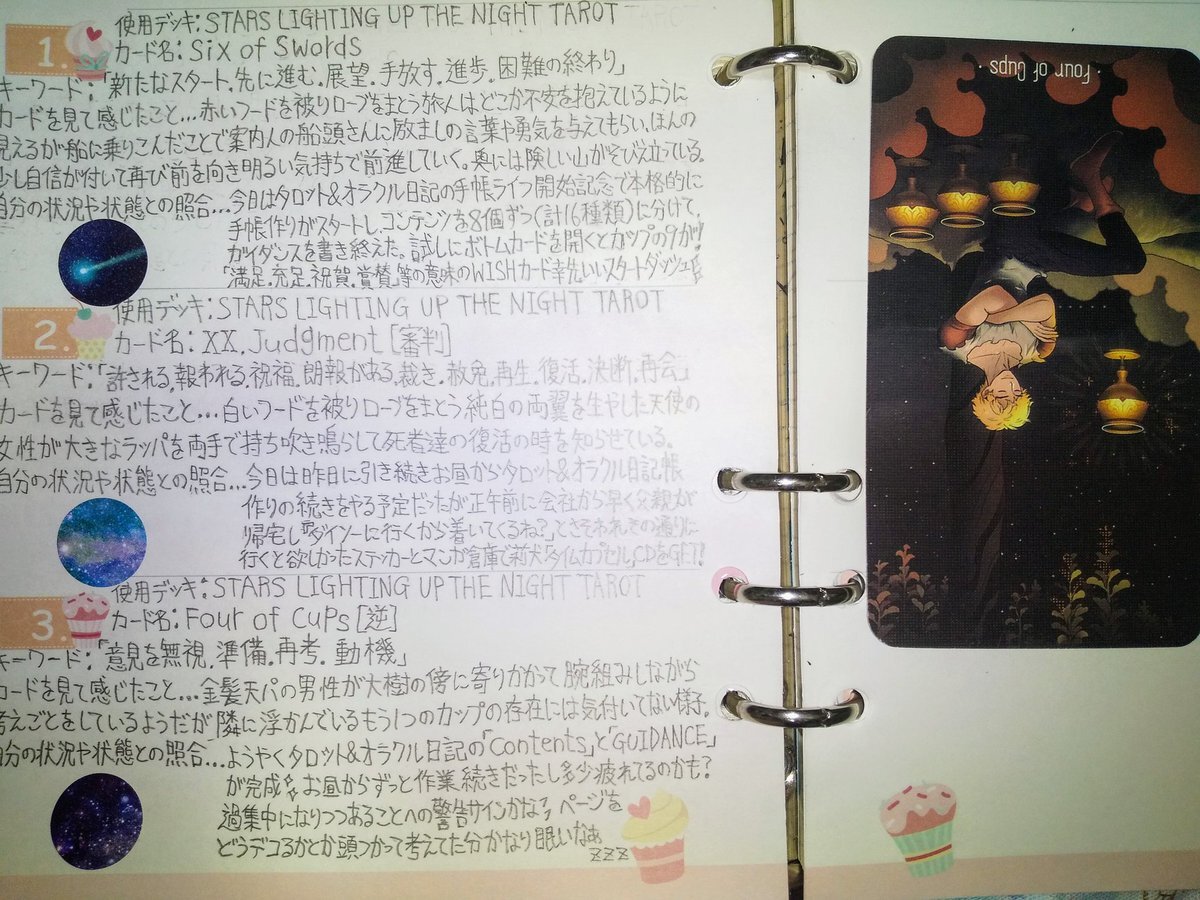 1.
使用デッキ:STARS LIGHTING UP THE NIGHT TAROT
カード名:Six of Swords
キーワード:「新たなスタート.先に進む.展望.手放す.進歩.困難の終わり」
カードを見て感じたこと...赤いフードを被りローブをまとう旅人は、どこか不安を抱えているように
見えるが船に乗りこんだことで案内人の船頭さんに励ましの言葉や勇気を与えてもらい、ほんの
少し自信が付いて再び前を向き明るい気持ちで前進していく。奥には険しい山がそびえ立っている。
自分の状況や状態との照合...今日はタロット&オラクル日記の手帳ライフ開始記念で本格的に
手帳作りがスタートし、コンテンツを8個ずつ(計16種類)に分けて、
ガイダンスを書き終えた。試しにボトムカードを開くとカップの9が!
「満足.充足.祝賀.賞賛」等の意味のWISHカード幸先いいスタートダッシュ
2.
使用デッキ:STARS LIGHTING UP THE NIGHT TAROT
カード名:XX.Judgment[審判]
キーワード:「許される,報われる.祝福.朗報がある.裁き.赦免.再生.復活.決断.再会」
カードを見て感じたこと...白いフードを被りローブをまとう純白の両翼を生やした天使の
女性が大きなラッパを両手で持ち吹き鳴らして死者達の復活の時を知らせている。
自分の状況や状態との照合...今日は昨日に引き続きお昼からタロット&オラクル日記帳
作りの続きをやる予定だったが正午前に会社から早く父親が
帰宅し「ダイソーに行くから着いてくるね?」とさそわれ
行くと欲しかったステッカーとマンガ倉庫で新犬タイムカプセル,CDをGET!
3.
使用デッキ:STARS LIGHTING UP THE NIGHT TAROT
カード名:Four of Cups[逆]
キーワード:「意見を無視.準備.再考.動機」
カードを見て感じたこと...金髪天パの男性が大樹の傍に寄りかかって腕組みしながら
考えごとをしているようだが隣に浮かんでいるもう1つのカップの存在には気付いてない様子。
自分の状況や状態との照合...ようやくタロット&オラクル日記の「Contents」と「GUIDANCE」
が完成 お昼からずっと作業続きだったし多少疲れてるのかも?
過集中になりつつあることへの警告サインかな ページを
どうデコるかとか頭つかって考えてた分かなり眠いなぁ
zzz
· Four of Cups ·